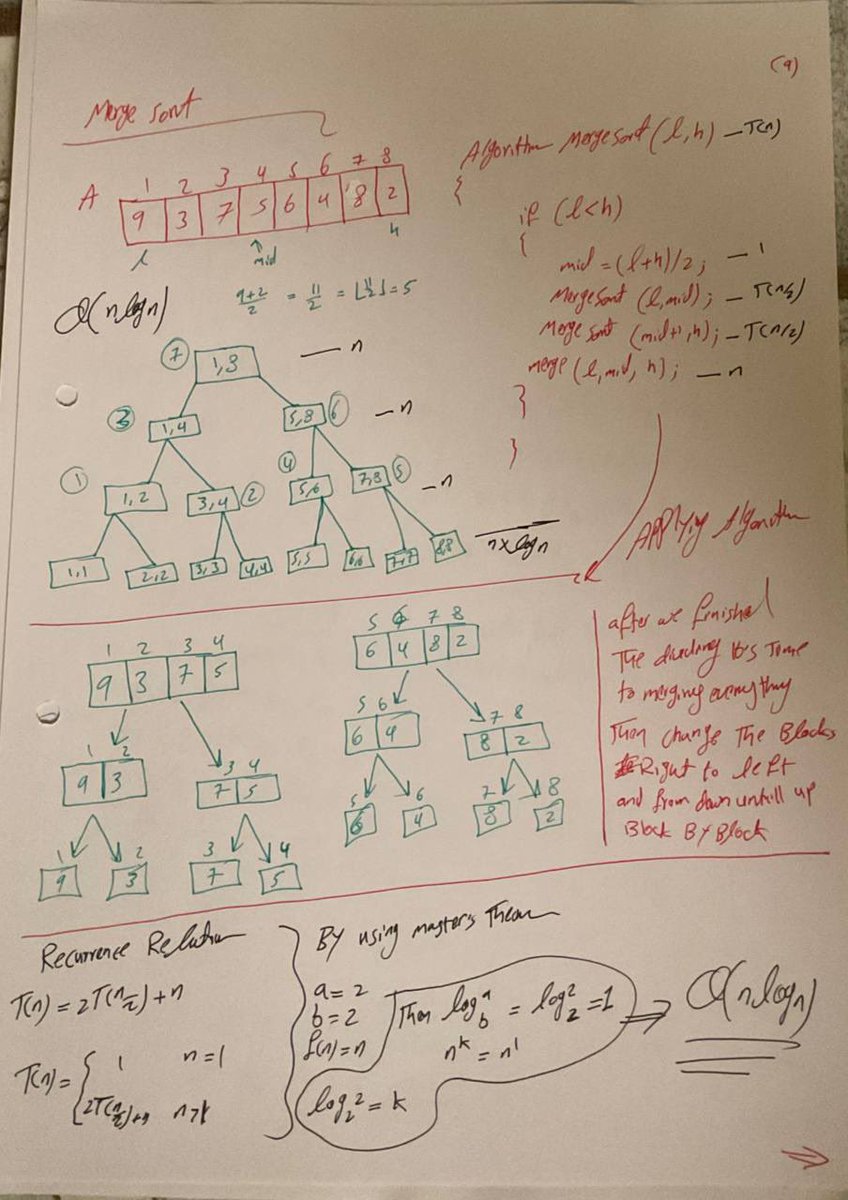 (9)
Merge sort
1 2 3 4 5 6 7 8
A 9 3 7 5 6 4 8 2
l mid h
O(nlogn)
9+2/2 = 11/2 = ⌊11/2⌋ = 5
Algorithm Mergesort (l,h) — T(n)
{
if (l<h)
{
mid = (l+h)/2; — 1
Mergesort (l,mid); — T(n/2)
Merge sort (mid+1,h); — T(n/2)
merge (l,mid,h); — n
}
}
⑦ 1,8 — n
③ 1,4 5,8 ⑥ — n
① 1,2 3,4 ② ④ 5,6 7,8 ⑤ — n
1,1 2,2 3,3 4,4 5,5 6,6 7,7 8,8 n×logn
Applying Algorithm
1 2 3 4
9 3 7 5
1 2 3 4
9 3 7 5
1 2 3 4
9 3 7 5
5 6 7 8
6 4 8 2
5 6 7 8
6 4 8 2
5 6 7 8
6 4 8 2
after we finished
The dividing it's Time
to merging everything
Then change The Blocks
Right to left
and from down untill up
Block By Block
Recurrence Relation
T(n) = 2T(n/2) + n
T(n) = { 1 n=1
2T(n/2)+n n>1
By using masters Theorm
a = 2
b = 2
f(n) = n
log₂2 = k
Then log_b a = log₂2 = 1
n^k = n^1
⇒ O(nlogn)